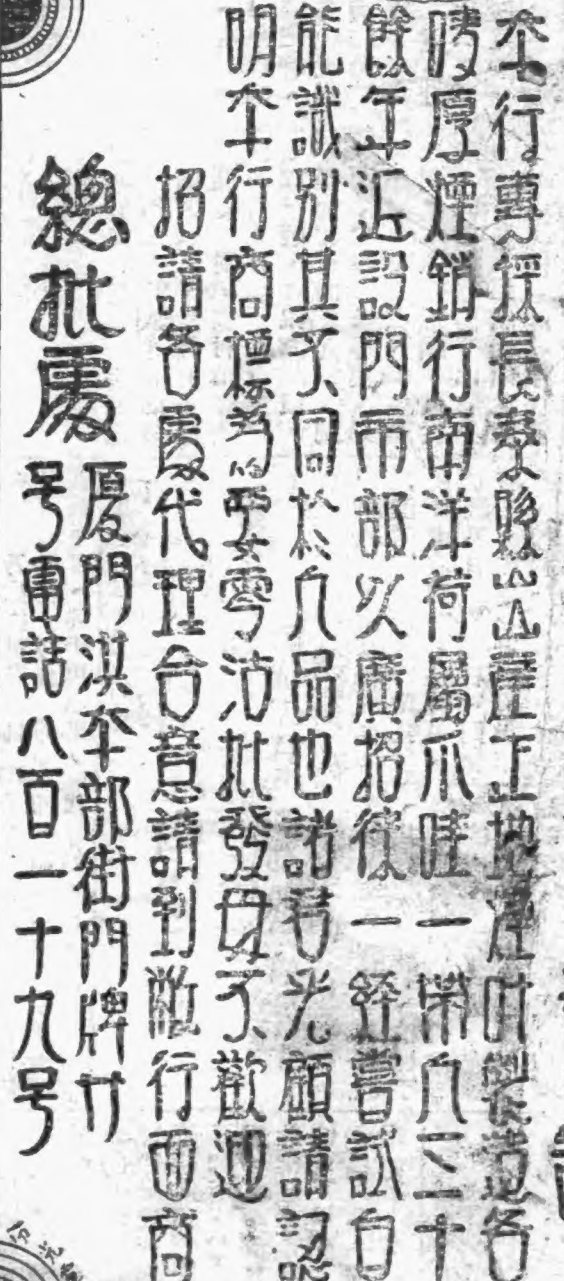 夲行專採長泰縣出產正地煙叶製造各
唛厚煙銷行南洋荷屬爪哇一帶凡三十
餘年近設門市部以廣招徠一經嘗試自
能識別其不同於凡品也諸君光顧請認
明夲行商標為要零沽批發毋不歡迎
招請各處代理合意請到敝行面商
總批處
厦門淇夲部街門牌廿
号電話八百一十九号